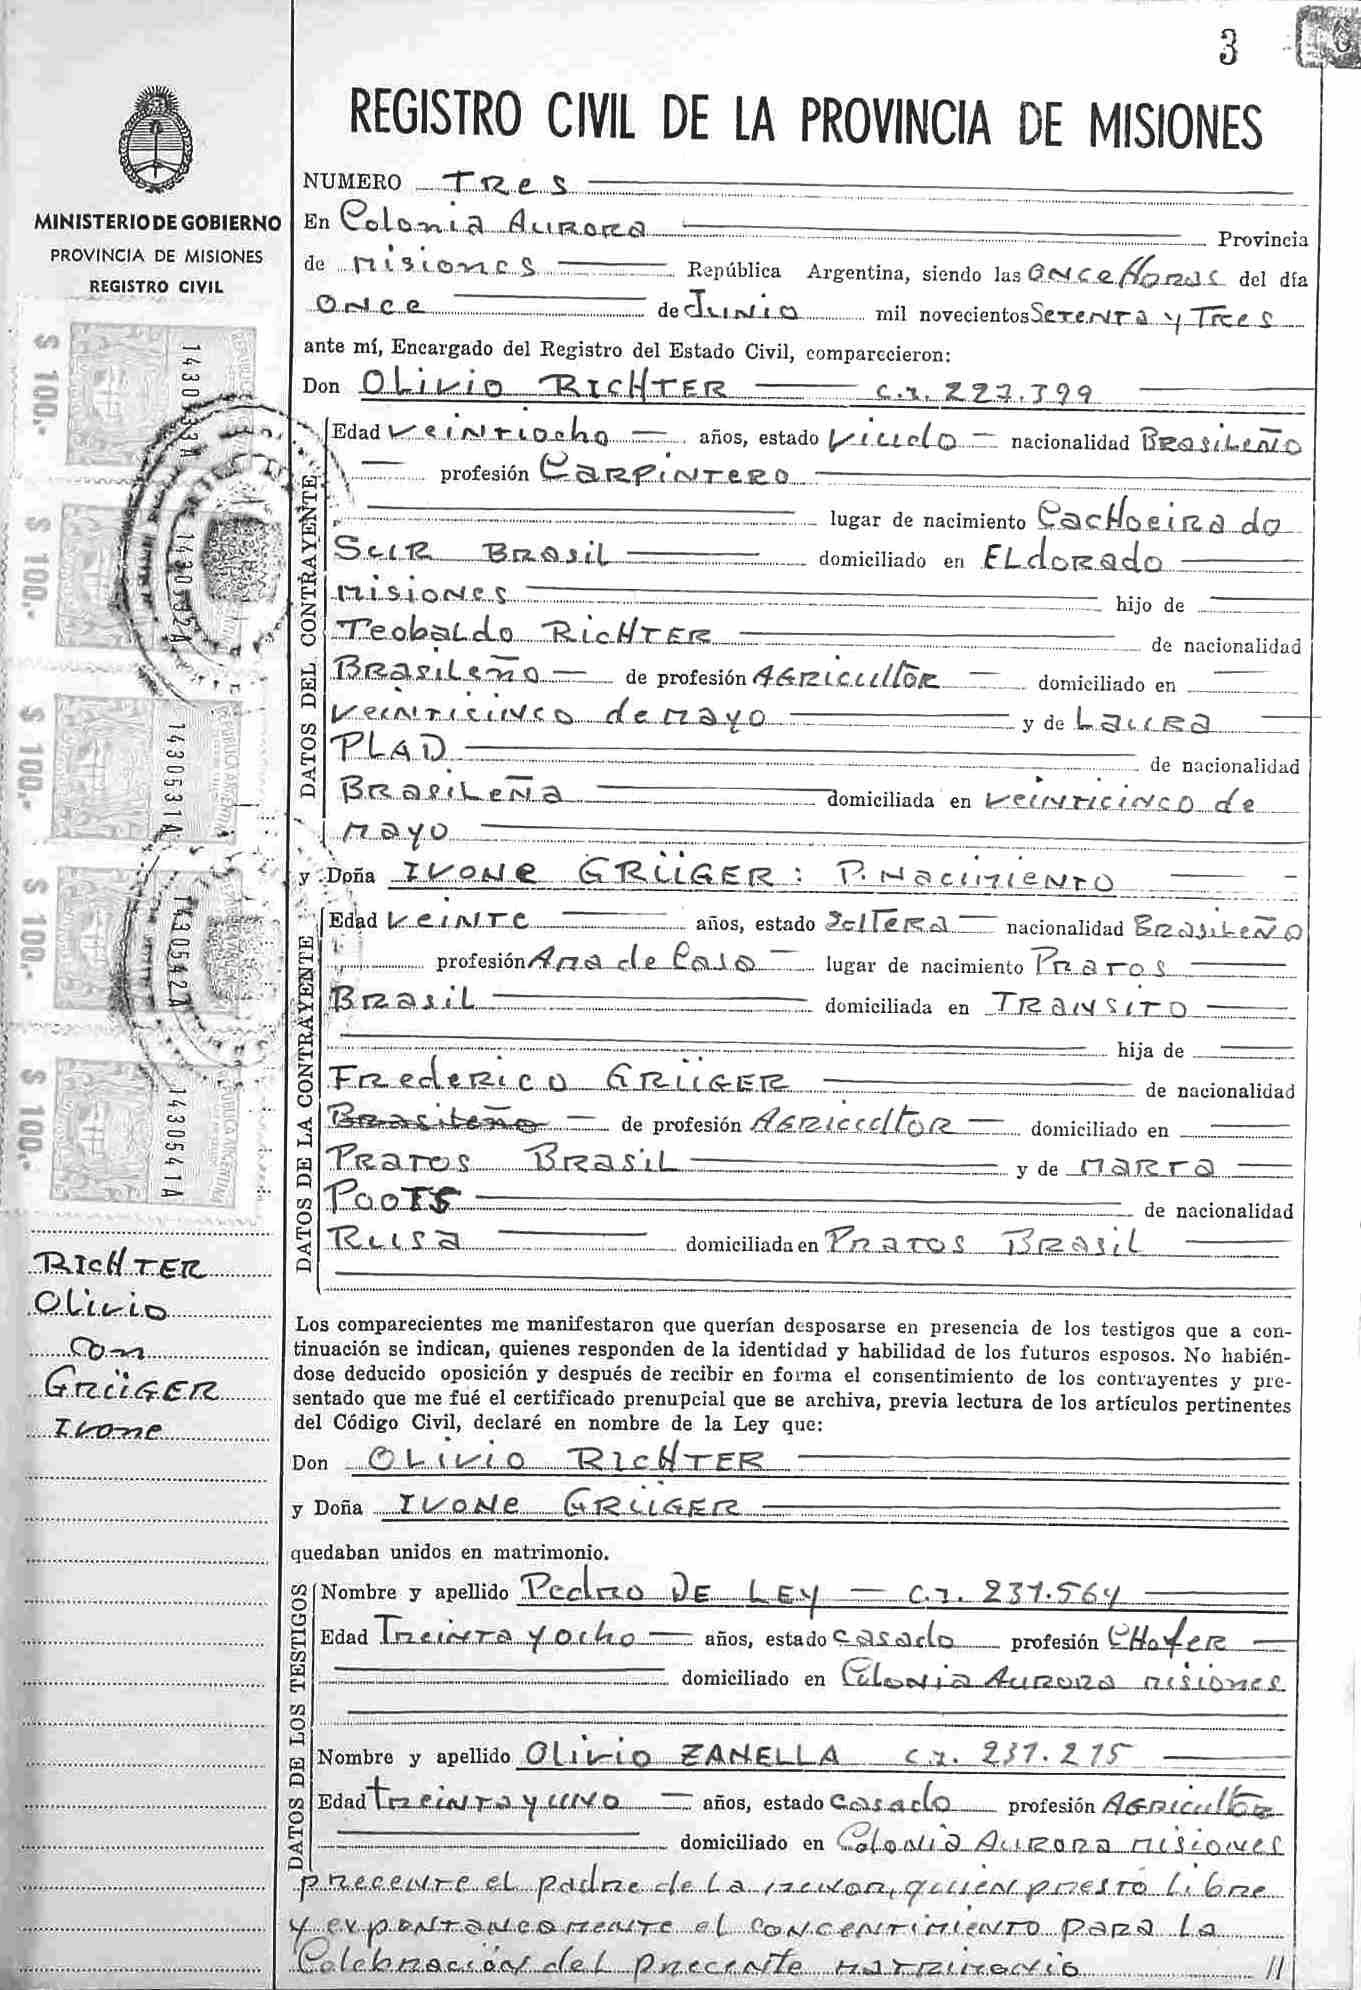 3
REGISTRO CIVIL DE LA PROVINCIA DE MISIONES
MINISTERIO DE GOBIERNO
PROVINCIA DE MISIONES
REGISTRO CIVIL
$ 100,- 143033A
$ 100,- 1430532A
$ 100,- 1430531A
$ 100,- 1430542A
$ 100,- 1430541A
RICHTER
Olivio
Con
GRÜGER
Ivone
NUMERO Tres
En Colonia Aurora Provincia
de Misiones República Argentina, siendo las once Horas del día
Once de Junio mil novecientos Setenta y Tres
ante mí, Encargado del Registro del Estado Civil, comparecieron:
Don OLivio RICHTER C.I. 227.399
DATOS DEL CONTRAYENTE
Edad veintiocho años, estado viudo nacionalidad BRasiLeño
profesión Carpintero
lugar de nacimiento Cachoeira do
Sur Brasil domiciliado en ELdorado
Misiones hijo de
TeobaLdo RicHTER de nacionalidad
BRasiLeño de profesión AGRicultor domiciliado en
Veinticinco de Mayo y de Laura
PLAD de nacionalidad
BrasiLeña domiciliada en veinticinco de
Mayo
y Doña IVONe GRÜGER: P. Nacimiento
DATOS DE LA CONTRAYENTE
Edad veinte años, estado SolTera nacionalidad BrasiLeño
profesión Ama de Casa lugar de nacimiento Pratos
Brasil domiciliada en TRANSITO
hija de
FRedeRico GRÜGER de nacionalidad
Brasileño de profesión AGRicultor domiciliado en
Pratos Brasil y de Marta
de nacionalidad
Rusa domiciliada en Pratos Brasil
Los comparecientes me manifestaron que querían desposarse en presencia de los testigos que a con-
tinuación se indican, quienes responden de la identidad y habilidad de los futuros esposos. No habién-
dose deducido oposición y después de recibir en forma el consentimiento de los contrayentes y pre-
sentado que me fué el certificado prenupcial que se archiva, previa lectura de los artículos pertinentes
del Código Civil, declaré en nombre de la Ley que:
Don OLivio RICHTER
y Doña IVONe GRÜGER
quedaban unidos en matrimonio.
DATOS DE LOS TESTIGOS
Nombre y apellido Pedro DE LEY C.I. 237.564
Edad Treinta y ocho años, estado casado profesión CHofeR
domiciliado en Colonia Aurora Misiones
Nombre y apellido OLivio ZANELLA C.I. 237.215
Edad treinta y uno años, estado Casado profesión AGRicultor
domiciliado en Colonia Aurora Misiones
precente el padre de La menor, quien presto Libre
y expontaneamente el concentimiento para La
Celebración del precente matrimonio //